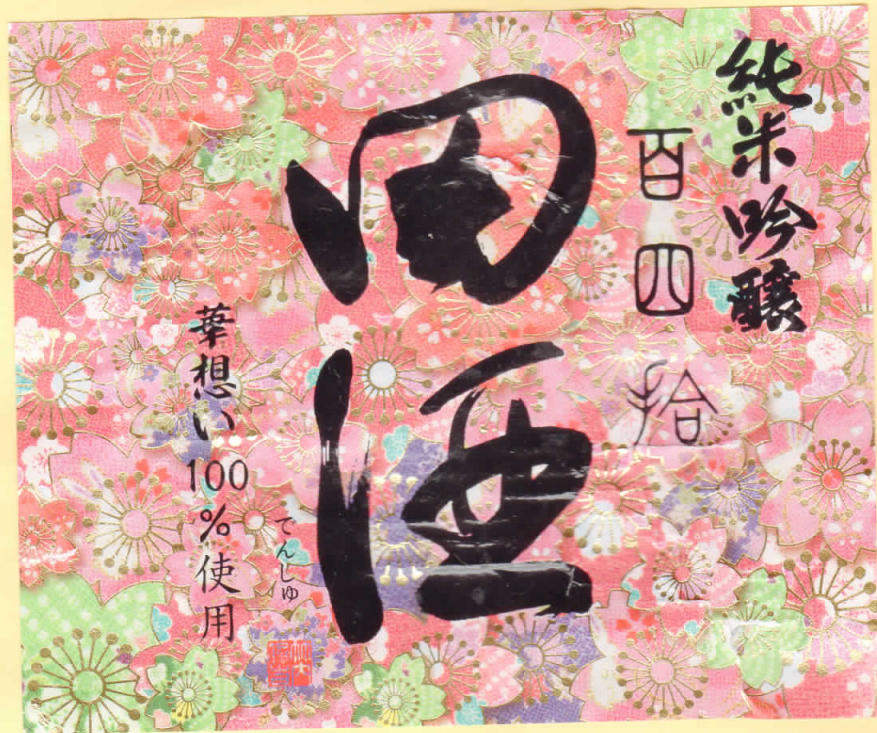 純米吟醸
百四拾
田酒
でんしゅ
華想い100%使用